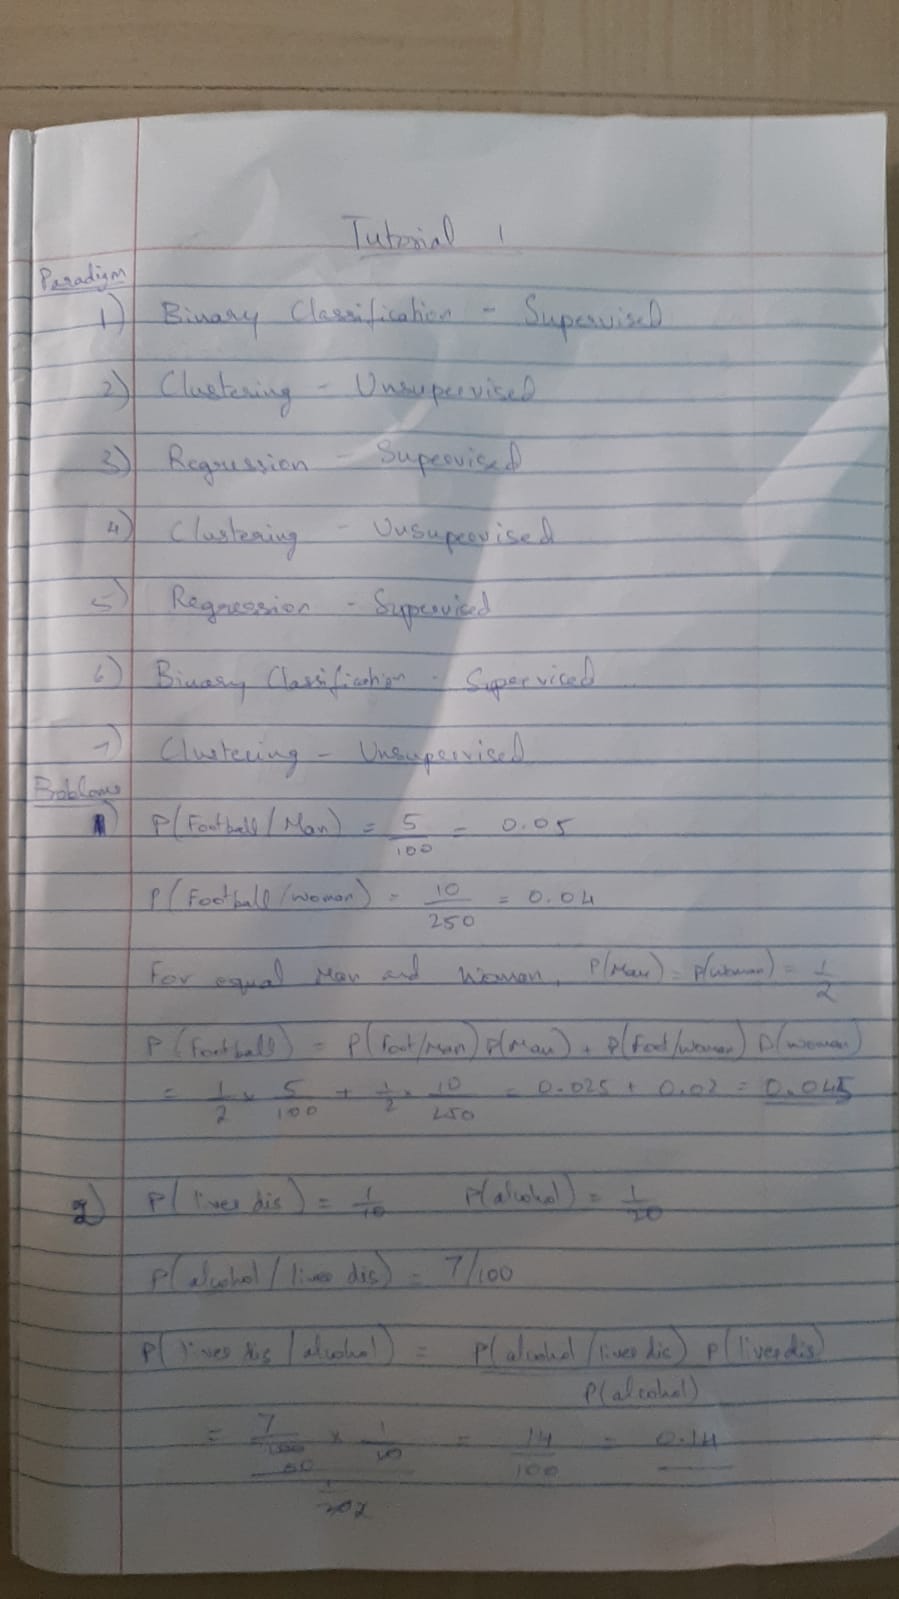 Tutorial 1
Paradigm
1) Binary Classification - Supervised
2) Clustering - Unsupervised
3) Regression - Supervised
4) Clustering - Unsupervised
5) Regression - Supervised
6) Binary Classification - Supervised
7) Clustering - Unsupervised
Problems
1) P(Football/Man) = 5/100 = 0.05
P(Football/woman) = 10/250 = 0.04
For equal Man and Woman, P(Man) = P(woman) = 1/2
P(Football) = P(foot/Man) P(Man) + P(foot/woman) P(woman)
= 1/2 × 5/100 + 1/2 × 10/250 = 0.025 + 0.02 = 0.045
2) P(liver dis) = 1/10 P(alcohol) = 1/20
P(alcohol/liver dis) = 7/100
P(liver dis/alcohol) = P(alcohol/liver dis) P(liver dis)
P(alcohol)
= 7/100 × 1/10 = 14/100 = 0.14